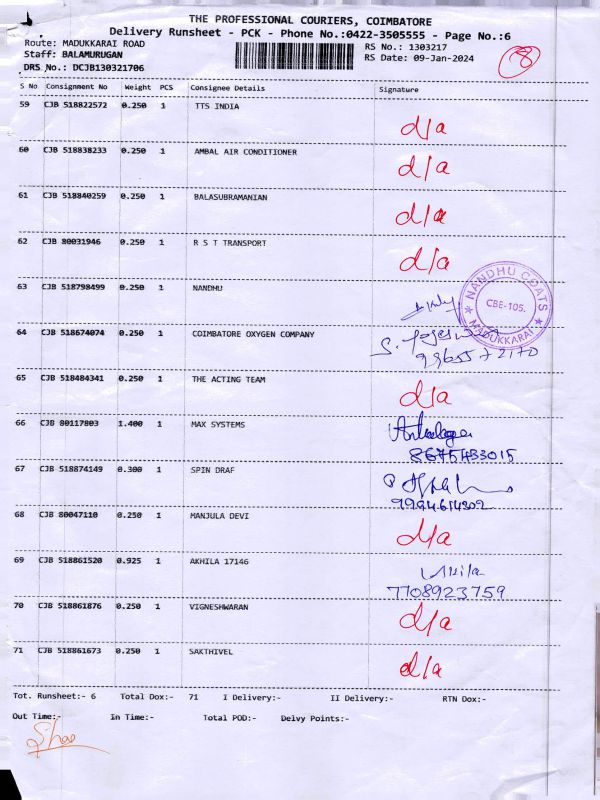 THE PROFESSIONAL COURIERS, COIMBATORE
Delivery Runsheet - PCK - Phone No.:0422-3505555 - Page No.:6
Route: MADUKKARAI ROAD RS No.: 1303217
Staff: BALAMURUGAN RS Date: 09-Jan-2024
DRS No.: DCJB130321706
8
S No Consignment No Weight PCS Consignee Details Signature
59 CJB 518822572 0.250 1 TTS INDIA d/a
60 CJB 518838233 0.250 1 AMBAL AIR CONDITIONER d/a
61 CJB 518840259 0.250 1 BALASUBRAMANIAN d/a
62 CJB 80031946 0.250 1 R S T TRANSPORT d/a
63 CJB 518798499 0.250 1 NANDHU
NANDHU COATS
CBE-105.
MADUKKARAI
64 CJB 518674074 0.250 1 COIMBATORE OXYGEN COMPANY
65 CJB 518484341 0.250 1 THE ACTING TEAM d/a
66 CJB 80117803 1.400 1 MAX SYSTEMS
8675433015
67 CJB 518874149 0.300 1 SPIN DRAF
9994614302
68 CJB 80047110 0.250 1 MANJULA DEVI d/a
69 CJB 518861520 0.925 1 AKHILA 17146 Akila
7708923759
70 CJB 518861876 0.250 1 VIGNESHWARAN d/a
71 CJB 518861673 0.250 1 SAKTHIVEL d/a
Tot. Runsheet:- 6 Total Dox:- 71 I Delivery:- II Delivery:- RTN Dox:-
Out Time:- In Time:- Total POD:- Delvy Points:-